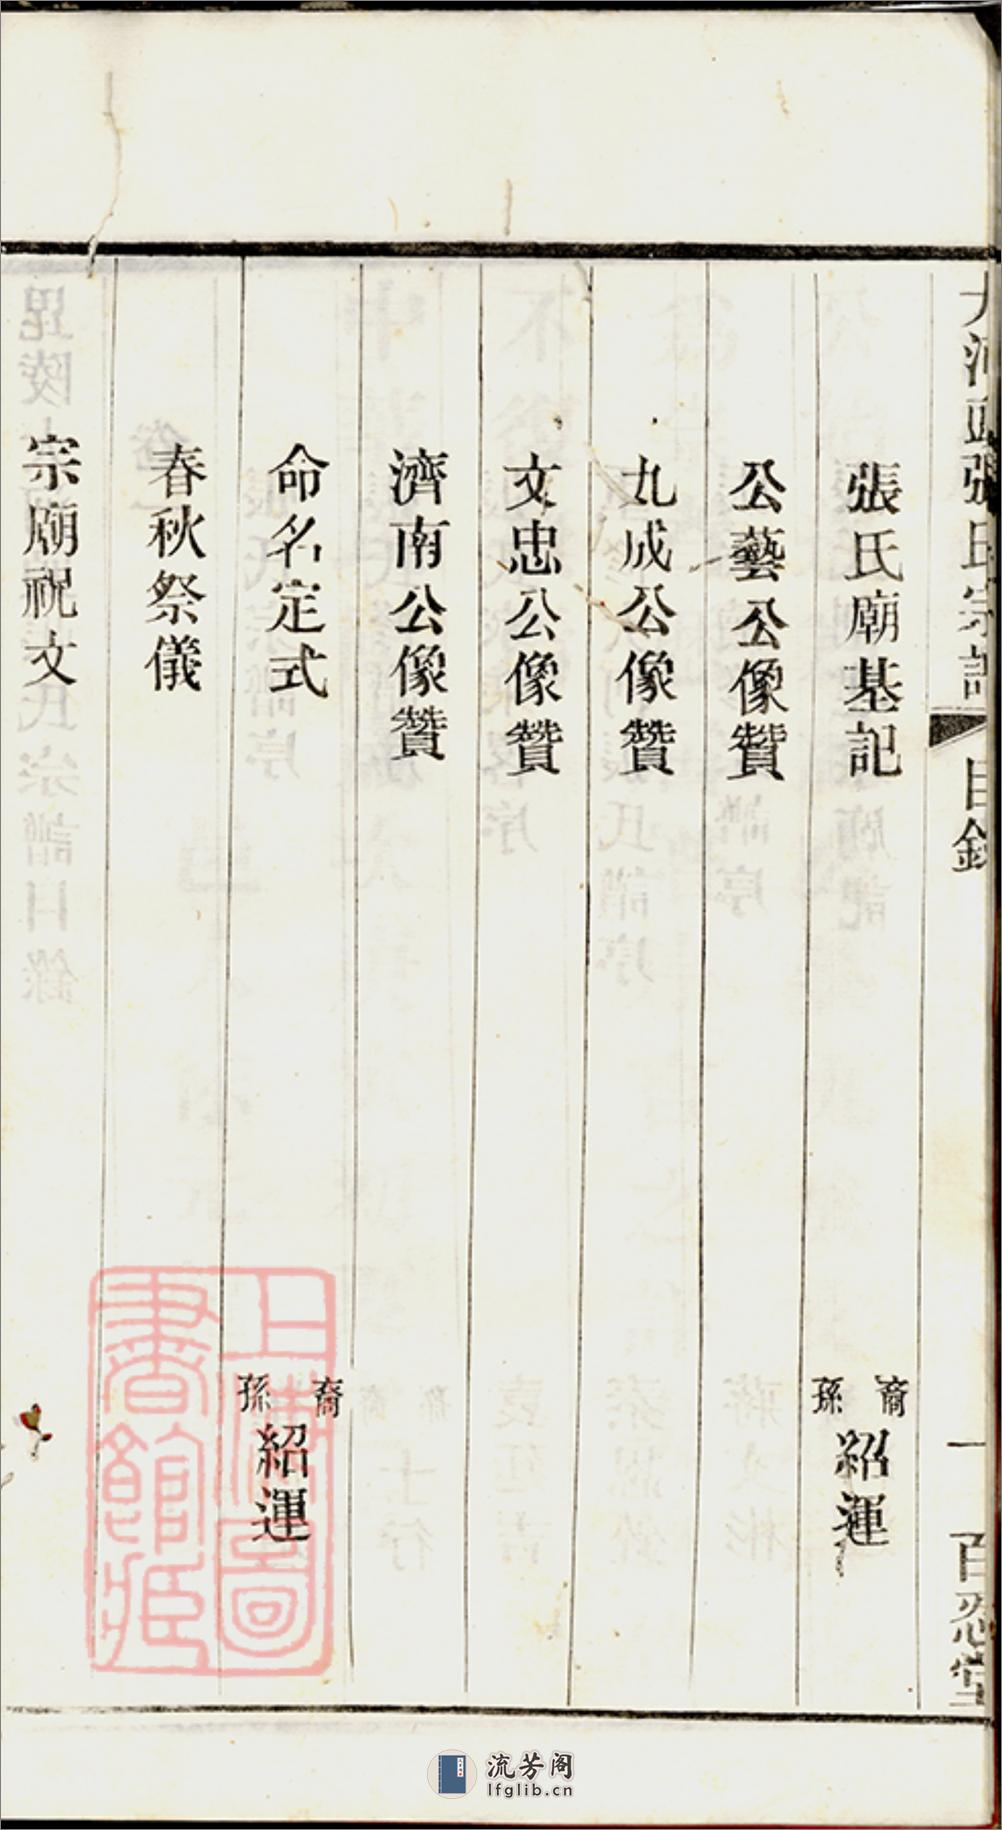 大河頭張氏宗譜 目錄 一 百忍堂
張氏廟基記 裔孫紹運
公藝公像贊
九成公像贊
文忠公像贊
濟南公像贊
命名定式 裔孫紹運
春秋祭儀
宗廟祝文
上海圖書館藏
流芳阁
lfglib.cn